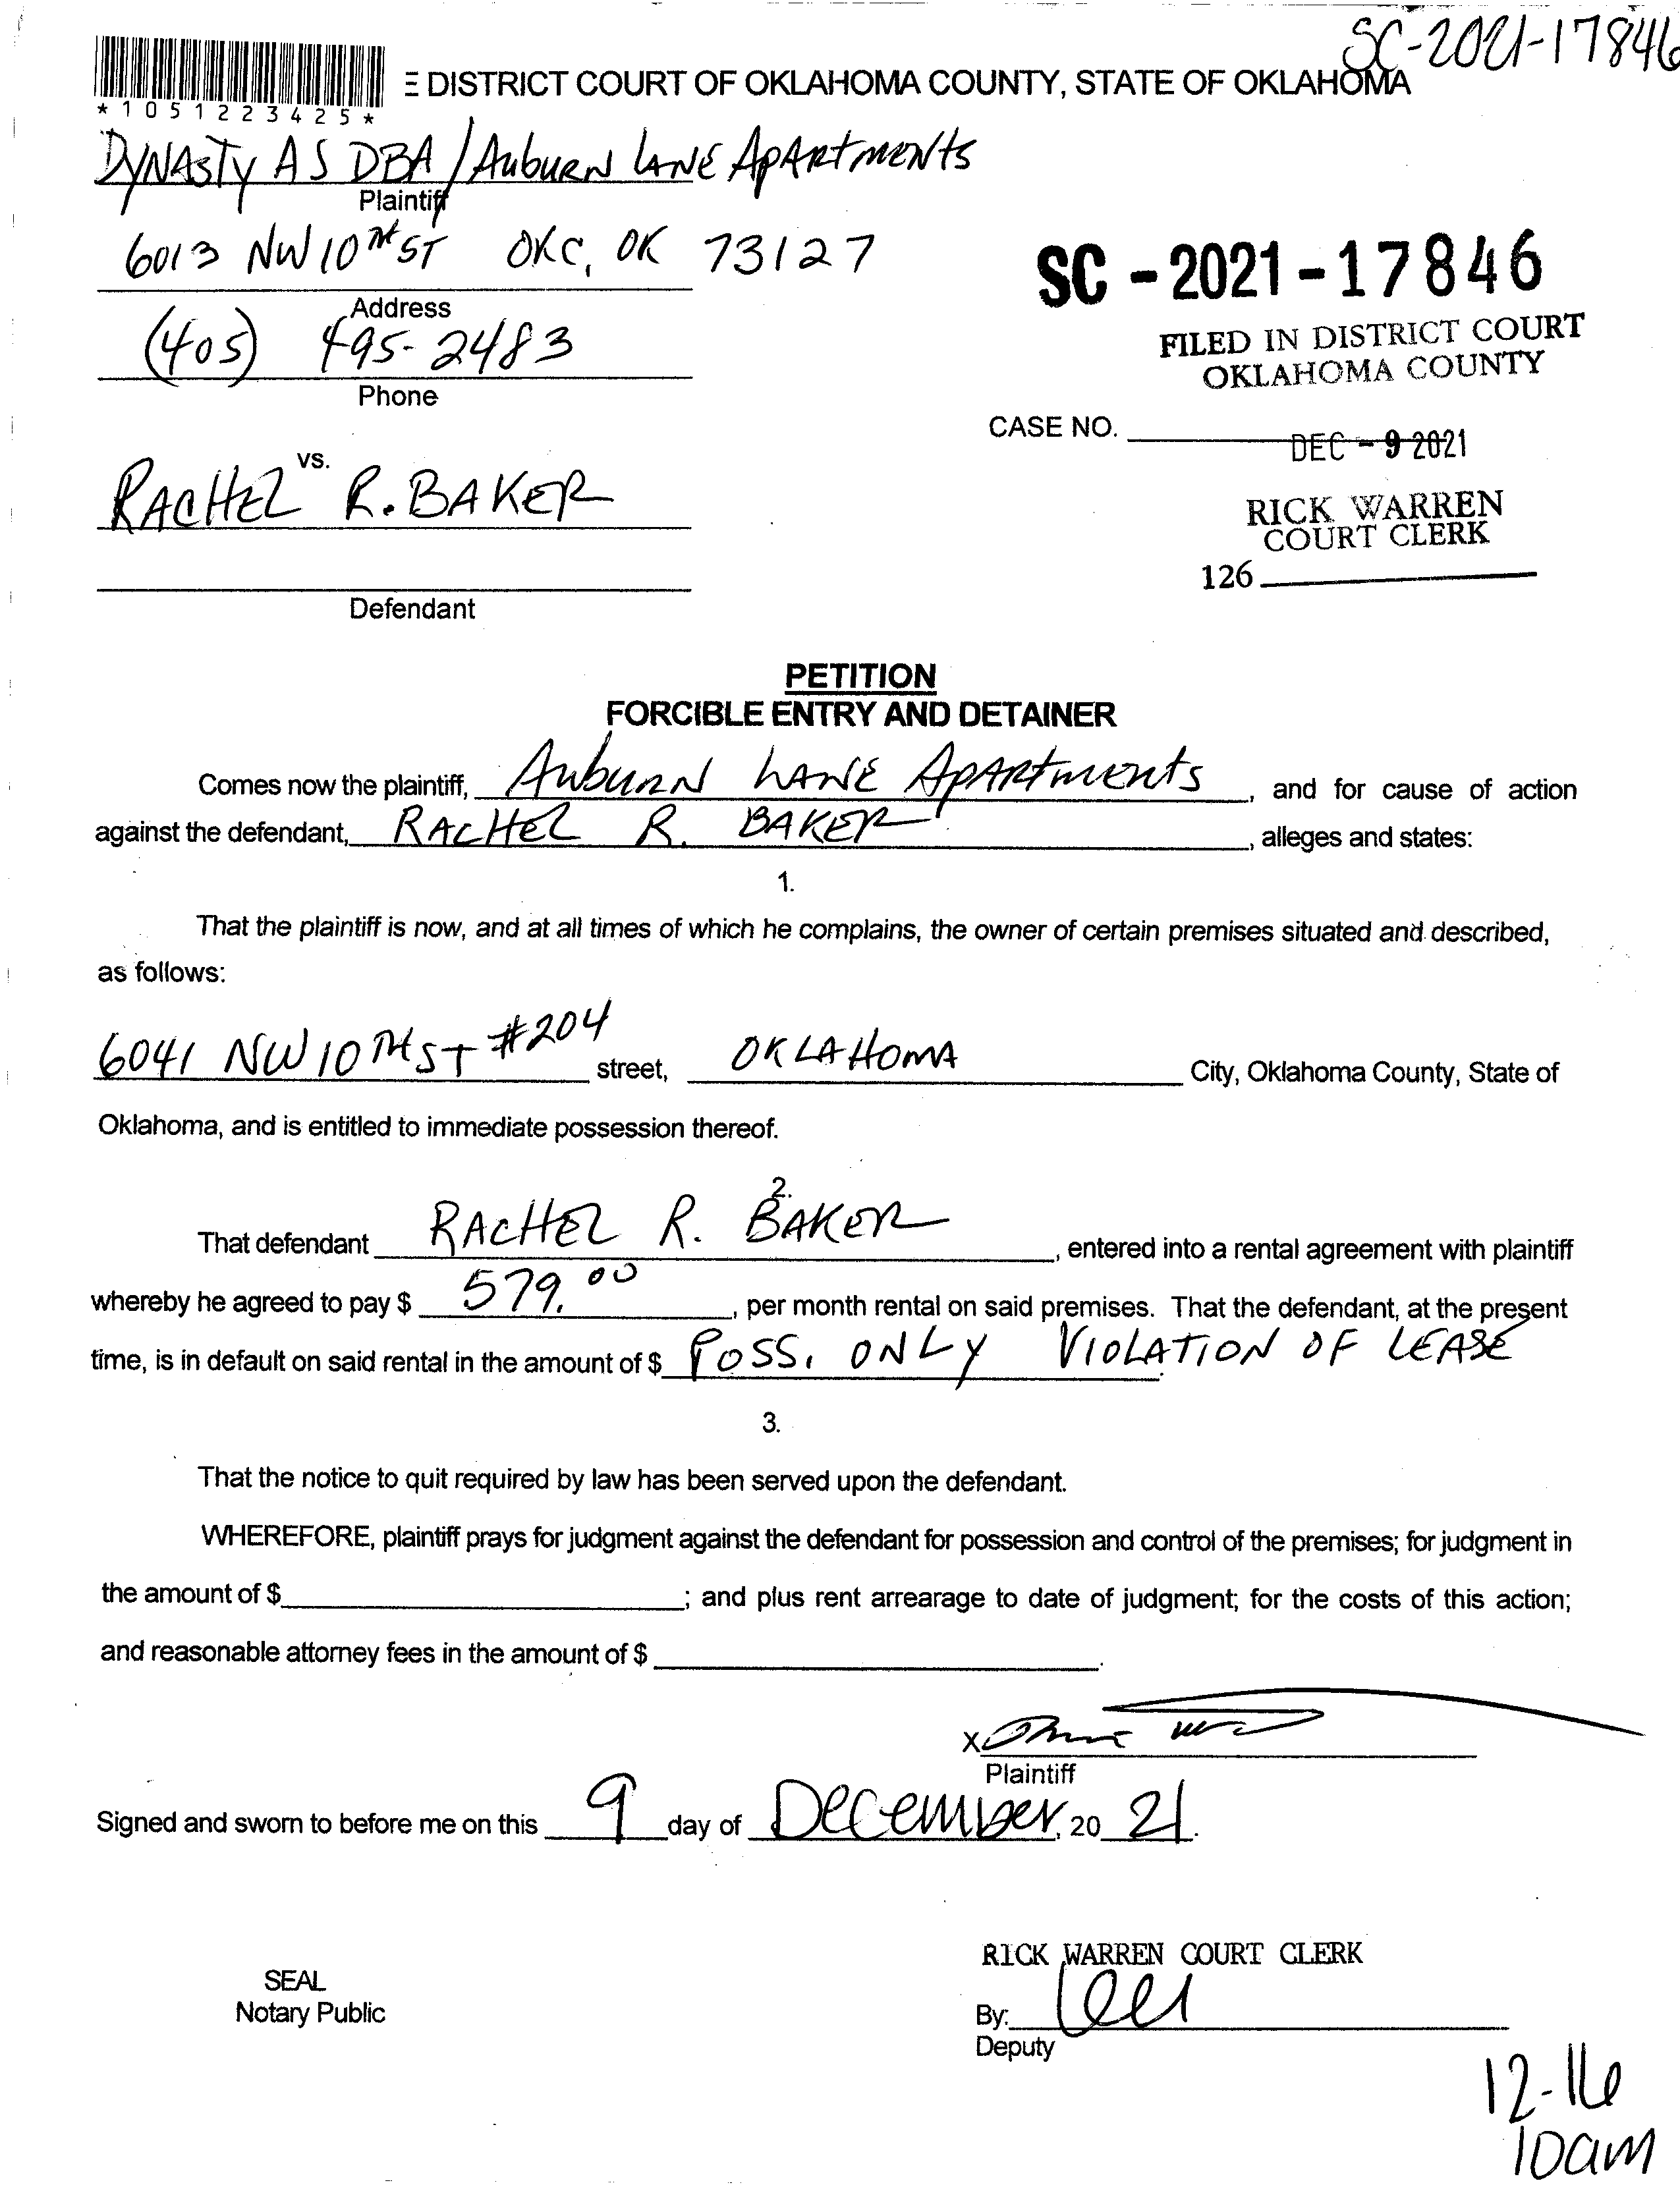 SC-2021-17846
DISTRICT COURT OF OKLAHOMA COUNTY, STATE OF OKLAHOMA
*1051223425*
DYNASTY AS DBA / AUBURN LANE APARTMENTS
Plaintiff
6013 NW 10TH ST OKC, OK 73127
Address
SC-2021-17846
FILED IN DISTRICT COURT
OKLAHOMA COUNTY
(405) 495-2483
Phone
CASE NO.
DEC - 9 2021
vs.
RACHEL R. BAKER
RICK WARREN
COURT CLERK
126
Defendant
PETITION
FORCIBLE ENTRY AND DETAINER
Comes now the plaintiff, Auburn LANE Apartments, and for cause of action
against the defendant, RACHEL R. BAKER, alleges and states:
1.
That the plaintiff is now, and at all times of which he complains, the owner of certain premises situated and described,
as follows:
6041 NW 10TH ST #204 street, OKLAHOMA City, Oklahoma County, State of
Oklahoma, and is entitled to immediate possession thereof.
2.
That defendant RACHEL R. BAKER, entered into a rental agreement with plaintiff
whereby he agreed to pay $ 579.00, per month rental on said premises. That the defendant, at the present
time, is in default on said rental in the amount of $ POSS. ONLY VIOLATION OF LEASE.
3.
That the notice to quit required by law has been served upon the defendant.
WHEREFORE, plaintiff prays for judgment against the defendant for possession and control of the premises; for judgment in
the amount of $; and plus rent arrearage to date of judgment; for the costs of this action;
and reasonable attorney fees in the amount of $.
X
Plaintiff
Signed and sworn to before me on this 9 day of December, 20 21.
RICK WARREN COURT CLERK
SEAL
Notary Public
By:
Deputy
12-16
10am